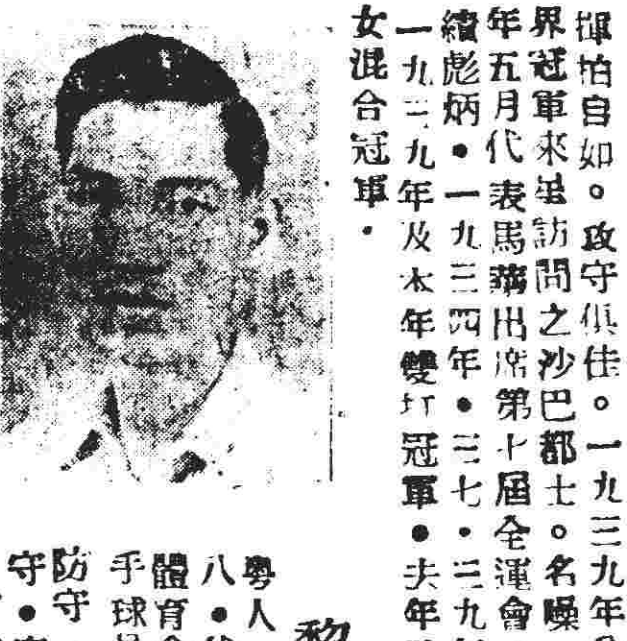 揮拍自如。攻守俱佳。一九三九年
界冠軍來星訪問之沙巴都士。名噪
年五月代表馬華出席第十屆全運會
續彪炳●一九三四年●三七・三九
一九三九年及本年雙打冠軍●去年
女混合冠軍・
粵人
八●
體育
手球
防守
守●